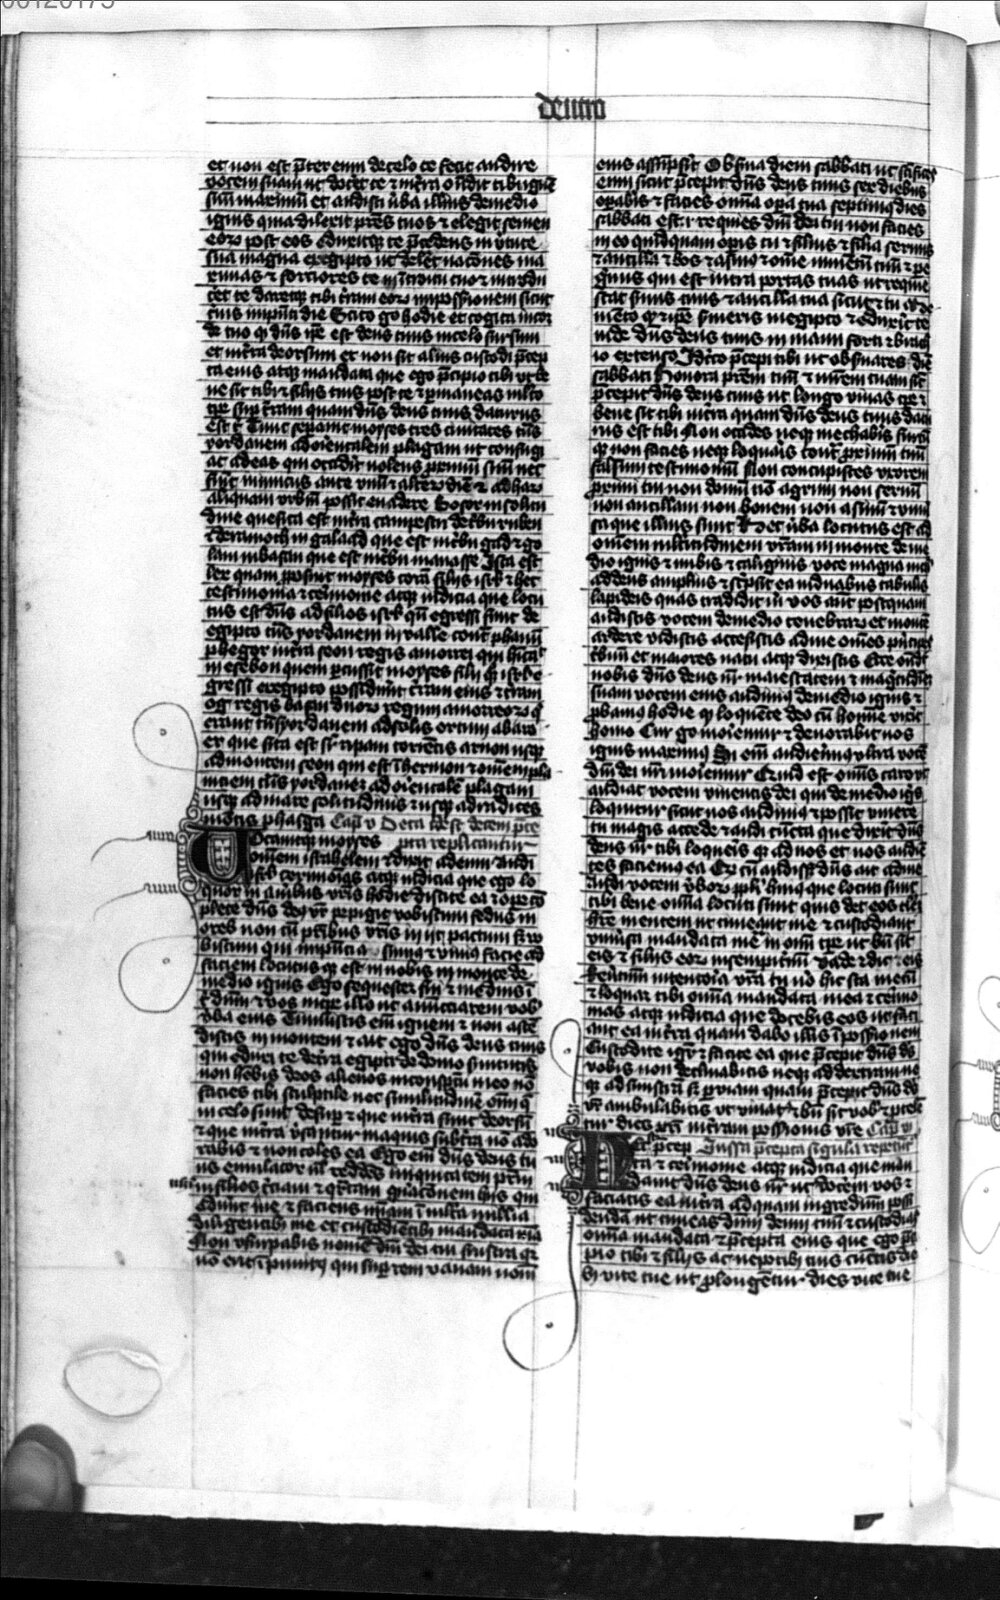 deutro
et non est p̄ter eum de celo te fecit audire
vocem suam ut doc̄et te et in t̄ra oñdit tibi ignē
suū maximū et audisti v̄ba illius de medio
ignis quia dilexit pr̄es tuos et elegit semen
eoꝝ post eos Eduxitqꝫ te p̄cedens in v̄tute
sua magna ex egipto ut deler̄et nac̄ones ma
ximas et forciores te in introitu tuo et int̄odu
cēt te daretqꝫ tibi t̄ram eoꝝ in possionem sicut
c̄nis in p̄nti die Scito g̊ hodie et cogita in cor
de tuo qꝫ dn̄s ip̄e est deus tuus in celo sursum
et in t̄ra deorsum et non sit alius custodi p̄cep
ta eius atqꝫ mandata que ego p̄cipio tibi ut be
ne sit tibi et filijs tuis post te et p̄maneas m̄lto
tp̄e sup̄ t̄ram quam dn̄s deus tuus daturus
est t̄ Tunc sepauit moyses tres ciuitates t̄ns
yordanem ad orientalem plagam ut confugi
at ad eas qui occid̄it nolens p̄ximū suū nec
sibi inimicus ante vnū et alterū diē et ad haꝝ
aliquam vrbiū possit euadere Bosor in solitu
dine que sita est in t̄ra campestri de t̄bu ruben
et ramoth in galaad que est in t̄bu gad et go
lam in basan que est in t̄bu manasse Ista est
lex quam p̄posuit moyses corā filijs isrl̄ et hec
testimonia et c̄imonie atqꝫ iudicia que locu
tus est dn̄s ad filios isrl̄ qn̄ egressi sunt de
egipto t̄ns yordanem in valle cont̄ phanū
phegor in t̄ra seon regis amorrei qui h̄itauit
in esebon quem p̄cussit moyses filij qꝫ isrl̄ e
gressi ex egipto possed̄unt t̄ram eius et t̄ram
og regis basan duoꝝ regum amorreoꝝ q̄
erant t̄ns yordanem ad solis ortum ab aro
er que sita est sr̄ ripam torrentis arnon usqꝫ
ad montem seon qui est et hermon et omnem pla
niciem t̄ns yordanez ad orientalē plagam
usqꝫ ad mare solitudinis et usqꝫ ad radices
montis phasga Cap̄ v
Uocauitqꝫ moyses p̄ta replicantur
omnem israhelem et dixit ad eum Audi
isrl̄ cerimonias atqꝫ iudicia que ego lo
quor in auribus vr̄is hodie discite ea et ope cō
plete dn̄s deus nr̄ pepigit nobiscum fedus in
oreb non cū pr̄ibus nr̄is inijt pactum sꝫ no
biscum qui in p̄nciaꝝ sumus et viuimꝰ facie ad
faciem locutus est nobis in monte de
medio ignis Ego sequester fui et medius int̄
dn̄m et vos in tp̄e illo ut annūciarem vob̄
v̄ba eius Timuistis em̄ ignem et non ascē
distis in montem et ait ego dn̄s deus tuus
qui eduxi te de t̄ra egipti de domo s̄uitutis
non h̄ebis deos alienos in conspectu meo nō
facies tibi sculptile nec similitudinē om̄i q̄
in celo sunt desup̄ et que in t̄ra sunt deorsū
et que in t̄ra v̄santur in aquis subt̄ra nō ado
rabis et non coles ea Ego em̄ dn̄s deus tu
us emulator sū reddēs iniquitatem pr̄m
in filios t̄ciam et q̄rtam gn̄ac̄onem hijs qui
od̄unt me et faciens mīam in multa millia
diligentibꝫ me et custodiētibꝫ mandata mea
Non vsurpabis nomē dn̄i dei tui frustra qꝛ
nō erit īpunitꝰ qui sup̄ rem vanam nom̄
eius assūps̄it Obs̄ua diem sabbati ut sc̄ifices
eum sicut p̄cepit dn̄s deus tuus sex diebus
opabis et facies omīa opa tua septimꝰ dies
sabbati est i requies dn̄i dei tui non facies
in eo quidquam opis tu et filius et filia seruus
et ancilla et bos et asinꝰ et om̄e iumentū tuū et pe
g̊nus qui est intra portas tuas ut requie
scat s̄uus tuus et ancilla tua sicut et tu
mento qꝫ et ip̄e s̄uieris in egipto et eduxit te
inde dn̄s deus tuus in manu forti et brachi
io extenso Idc̄o p̄cepit tibi ut obs̄uares diē
sabbati Honora pr̄em tuū et mr̄em tuam sic̄
p̄cepit dn̄s deus tuus ut longo viuas tp̄e et
bene sit tibi in t̄ra quam dn̄s deus tuus datu
rus est tibi Non occides neqꝫ mechabis furtū
qꝫ non facies neqꝫ loquaris cont̄ p̄ximū tuū
falsum testimoniū Non concupisces vxorem
p̄ximi tui non domū nō agrum non seruū
non ancillam non bouem non asinū et vniū
sa que illius sunt Hec v̄ba locutus est ad
omnem multitudinem vr̄am in monte de me
dio ignis et nubis et caliginis voce magna nich̄
addens amplius et sc̄psit ea in duabus tabulis
lapideis quas tradidit m̄ vos aūt postquam
audistis vocem de medio tenebraꝝ et monte
ardere vidistis accessistis ad me om̄es p̄ncipes
t̄buū et maiores natu atqꝫ dixistis Ecce oñdit
nobis dn̄s deus nr̄ maiestatem et magnitudinē
suam vocem eius audiuimꝰ de medio ignis et
p̄bauimꝰ hodie qꝫ loquente deo cū homine vixit
homo Cur g̊ moriemur et deuorabit nos
ignis maximꝰ Si em̄ audierimꝰ ultra vocē
dn̄i dei nr̄i moriemur Quid est om̄is caro ut
audiat vocem viuentis dei qui de medio ignis
loquitur sicut nos audiuimꝰ et possit viuere
tu magis accede et audi cūcta que dixerit dn̄s
deus nr̄ tibi loqueris qꝫ ad nos et nos audiē
tes faciemꝰ ea Qꝫ cū audisset dn̄s ait ad me
audi vocem v̄boꝝ pp̄li huiꝰ que locuti sunt
tibi bene omīa locuti sunt quis det eos talē
h̄re mentem ut timeant me et custodiant
vniūsa mandata mea in om̄i tp̄e ut bn̄ sit
eis et filijs eoꝝ in sempit̄nū Vade et dic eis
Reūtimī in tentoria vr̄a tu v̄o hic sta mecū
et loquar tibi omīa mandata mea et ceīmo
nias atqꝫ iudicia que docebis eos ut faci
ant ea in t̄ra quam dabo illis ī possionem
Custodite igr̄ et facite ea que p̄cepit dn̄s ds̄
vobis non declinabitis neqꝫ ad dextram ne
qꝫ ad sinistrā sꝫ p̄ viam quam p̄cepit dn̄s ds̄
vr̄ ambulabitis ut viuat et bn̄ sit vob̄ et p̄tele
tur dies in t̄ram possionis vr̄e Cap̄ vi
Hec sūt p̄cep Iussa p̄cepta sigula repetūt
ta et ceīmonie atqꝫ iudicia que man
dauit dn̄s deus nr̄ ut docerē vos et
faciatis ea in t̄ra ad quam ingredimī possi
dendā ut timeas dn̄m deum tuū et custodias
omīa mandata et p̄cepta eius que ego p̄ci
pio tibi et filijs ac nepotibꝫ tuis cunctis die
bꝫ vite tue ut p̄longētur dies vite tue